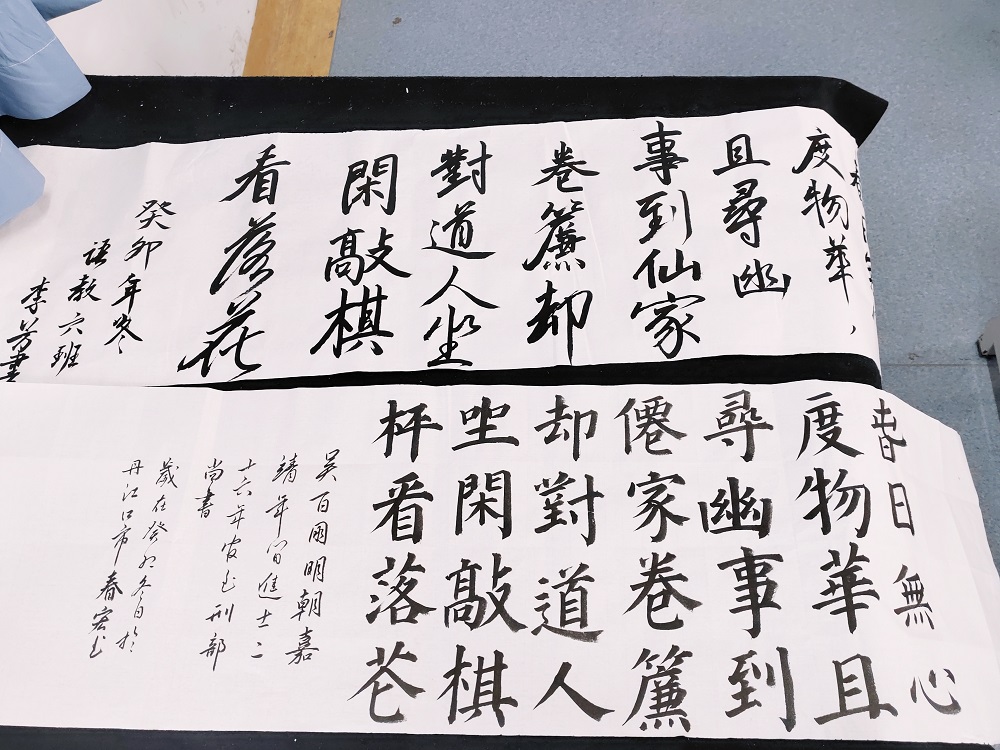 度物華,
且尋幽
事到仙家
卷簾却
對道人坐
閑敲棋
看落花
癸卯年冬
語教六班
李芳書
春日無心
度物華且
尋幽事到
僊家卷簾
却對道人
坐閑敲棋
枰看落花
吴百朋明朝嘉
靖年间進士二
十六年官至刑部
尚書
歲在癸卯冬日於
丹江口市春宏书